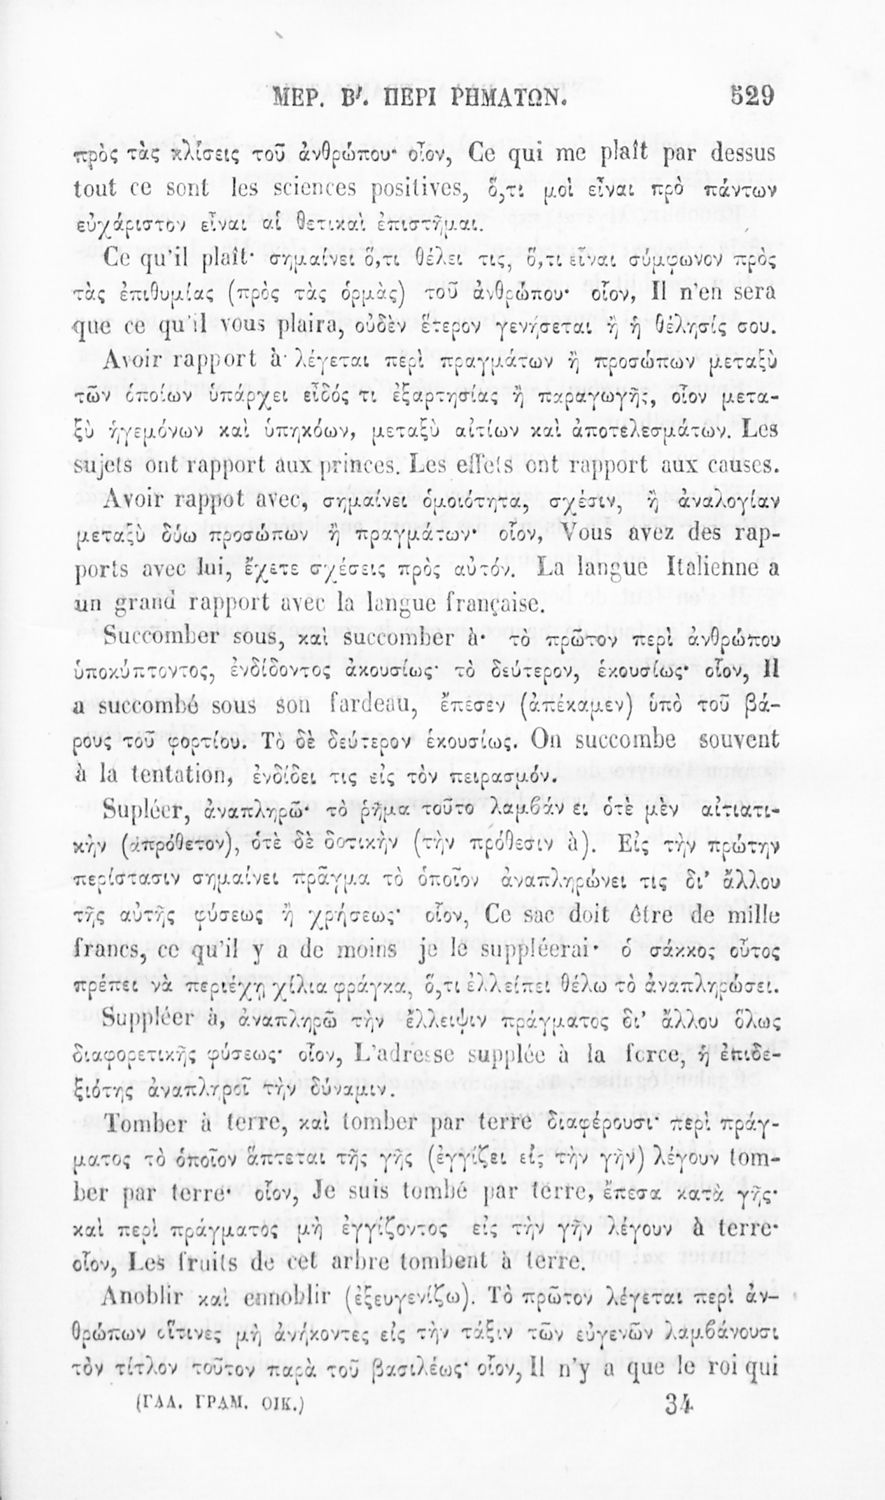 ΜΕΡ. Β′. ΠΕΡΙ ΡΗΜΑΤΩΝ. 529
πρὸς τὰς κλίσεις τοῦ ἀνθρώπου· οἷον, Ce qui me plaît par dessus
tout ce sont les sciences positives, ὅ,τι μοὶ εἶναι πρὸ πάντων
εὐχάριστον εἶναι αἱ θετικαὶ ἐπιστῆμαι.
Ce qu'il plaît· σημαίνει ὅ,τι θέλει τις, ὅ,τι εἶναι σύμφωνον πρὸς
τὰς ἐπιθυμίας (πρὸς τὰς ὁρμὰς) τοῦ ἀνθρώπου· οἷον, Il n'en sera
que ce qu'il vous plaira, οὐδὲν ἕτερον γενήσεται ἢ ἡ θέλησίς σου.
Avoir rapport à· λέγεται περὶ πραγμάτων ἢ προσώπων μεταξὺ
τῶν ὁποίων ὑπάρχει εἶδός τι ἐξαρτησίας ἢ παραγωγῆς, οἷον μετα-
ξὺ ἡγεμόνων καὶ ὑπηκόων, μεταξὺ αἰτίων καὶ ἀποτελεσμάτων. Les
sujets ont rapport aux princes. Les effets ont rapport aux causes.
Avoir rappot avec, σημαίνει ὁμοιότητα, σχέσιν, ἢ ἀναλογίαν
μεταξὺ δύω προσώπων ἢ πραγμάτων· οἷον, Vous avez des rap-
ports avec lui, ἔχετε σχέσεις πρὸς αὐτόν. La langue Italienne a
un grand rapport avec la langue française.
Succomber sous, καὶ succomber à· τὸ πρῶτον περὶ ἀνθρώπου
ὑποκύπτοντος, ἐνδίδοντος ἀκουσίως· τὸ δεύτερον, ἑκουσίως· οἷον, Il
a succombé sous son fardeau, ἔπεσεν (ἀπέκαμεν) ὑπὸ τοῦ βά-
ρους τοῦ φορτίου. Τὸ δὲ δεύτερον ἑκουσίως. On succombe souvent
à la tentation, ἐνδίδει τις εἰς τὸν πειρασμόν.
Supléer, ἀναπληρῶ· τὸ ῥῆμα τοῦτο λαμβάν ει ὁτὲ μὲν αἰτιατι-
κὴν (ἀπρόθετον), ὁτὲ δὲ δοτικὴν (τὴν πρόθεσιν à). Εἰς τὴν πρώτην
περίστασιν σημαίνει πρᾶγμα τὸ ὁποῖον ἀναπληρώνει τις δι' ἄλλου
τῆς αὐτῆς φύσεως ἢ χρήσεως· οἷον, Ce sac doit être de mille
francs, ce qu'il y a de moins je le suppléerai· ὁ σάκκος οὗτος
πρέπει νὰ περιέχῃ χίλια φράγκα, ὅ,τι ἐλλείπει θέλω τὸ ἀναπληρώσει.
Suppléer à, ἀναπληρῶ τὴν ἔλλειψιν πράγματος δι' ἄλλου ὅλως
διαφορετικῆς φύσεως· οἷον, L'adresse supplée à la force, ἡ ἐπιδε-
ξιότης ἀναπληροῖ τὴν δύναμιν.
Tomber à terre, καὶ tomber par terre διαφέρουσι· περὶ πράγ-
ματος τὸ ὁποῖον ἅπτεται τῆς γῆς (ἐγγίζει εἰς τὴν γῆν) λέγουν tom-
ber par terre· οἷον, Je suis tombé par terre, ἔπεσα κατὰ γῆς·
καὶ περὶ πράγματος μὴ ἐγγίζοντος εἰς τὴν γῆν λέγουν à terre·
οἷον, Les fruits de cet arbre tombent à terre.
Anoblir καὶ ennoblir (ἐξευγενίζω). Τὸ πρῶτον λέγεται περὶ ἀν-
θρώπων οἵτινες μὴ ἀνήκοντες εἰς τὴν τάξιν τῶν εὐγενῶν λαμβάνουσι
τὸν τίτλον τοῦτον παρὰ τοῦ βασιλέως· οἷον, Il n'y a que le roi qui
(ΓΑΛ. ΓΡΑΜ. ΟΙΚ.) 34